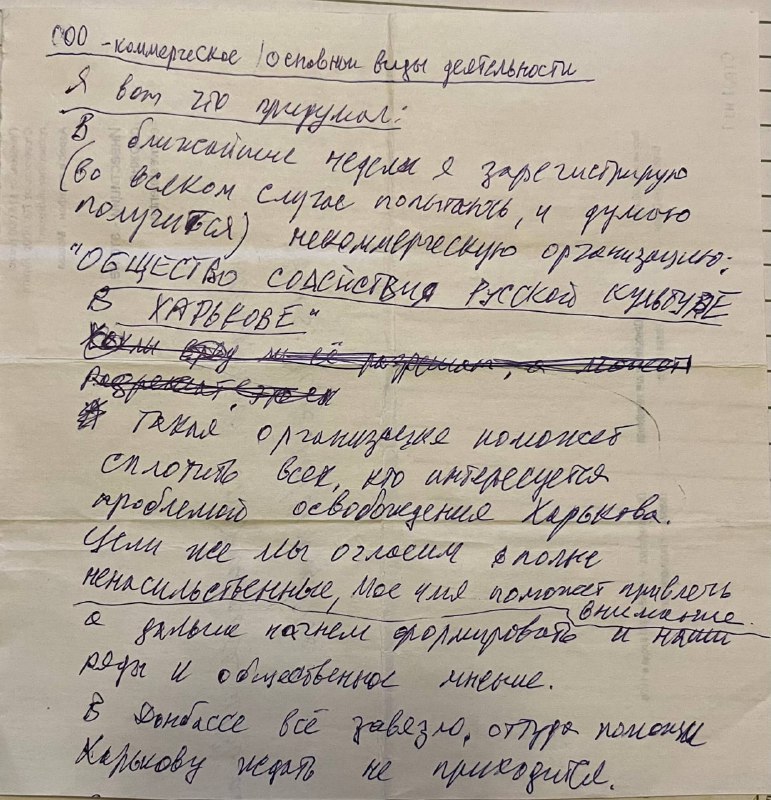 ООО - коммерческое / основной виды деятельности
Я вот что придумал:
В ближайшие недели я зарегистрирую
(во всяком случае попытаюсь, и думаю
получится) некоммерческую организацию:
"ОБЩЕСТВО СОДЕЙСТВИЯ РУССКОЙ КУЛЬТУРЕ
В ХАРЬКОВЕ"
Такая организация поможет
сплотить всех, кто интересуется
проблемой освобождения Харькова.
Цели же мы огласим вполне
ненасильственные, Мое имя поможет привлечь
внимание.
а дальше начнем формировать и наши
ряды и общественное мнение.
В Донбассе всё завязло, оттуда помощи
Харькову ждать не приходится.